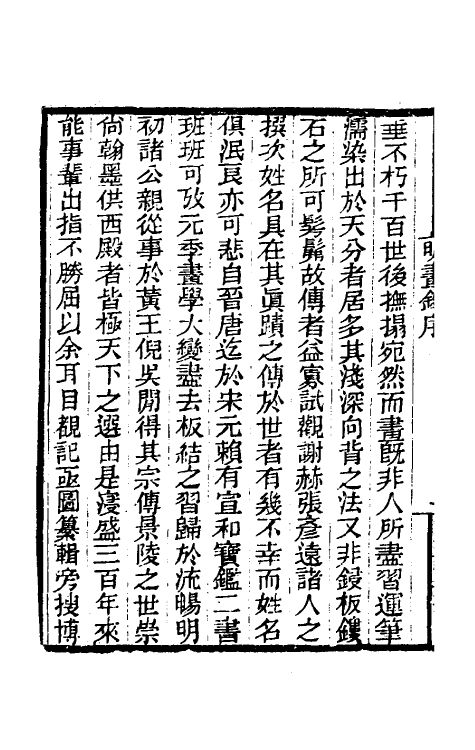 明畫錄序
垂不朽千百世後撫搨宛然而畫旣非人所盡習運筆
濡染出於天分者居多其淺深向背之法又非鋟板鏤
石之所可髣髴故傳者益寡試觀謝赫張彥遠諸人之
撰次姓名具在其眞蹟之傳於世者有幾不幸而姓名
俱泯良亦可悲自晉唐迄於宋元賴有宣和寶鑑二書
班班可攷元季畫學大變盡去板結之習歸於流暢明
初諸公親從事於黃王倪吳閒得其宗傳景陵之世崇
尙翰墨供西殿者皆極天下之選由是寖盛三百年來
能事輩出指不勝屈以余耳目覩記亟圖纂輯旁搜博